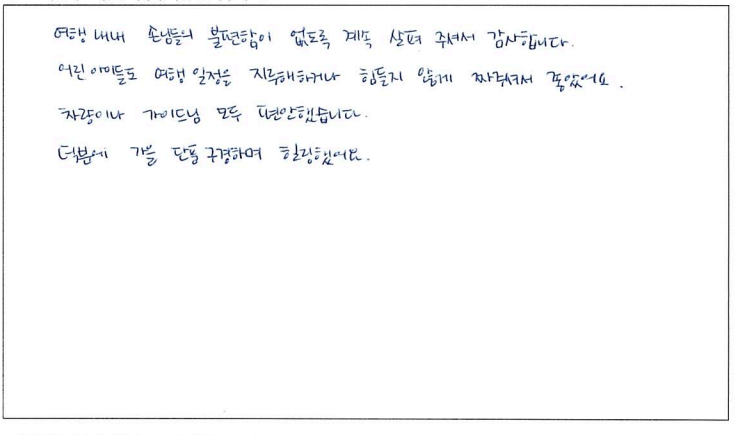 여행 내내 손님들의 불편함이 없도록 계속 살펴 주셔서 감사합니다.
어린 아이들도 여행 일정을 지루해하거나 힘들지 않게 짜주셔서 좋았어요.
차량이나 가이드님 모두 편안했습니다.
덕분에 가을 단풍 구경하며 힐링했어요.